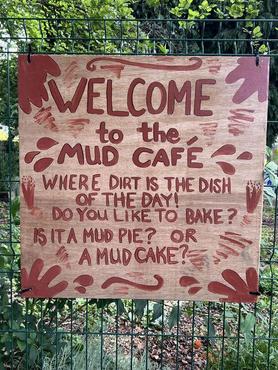 WELCOME
to the
MUD CAFÉ
WHERE DIRT IS THE DISH
OF THE DAY!
DO YOU LIKE TO BAKE?
IS IT A MUD PIE? OR
A MUD CAKE?